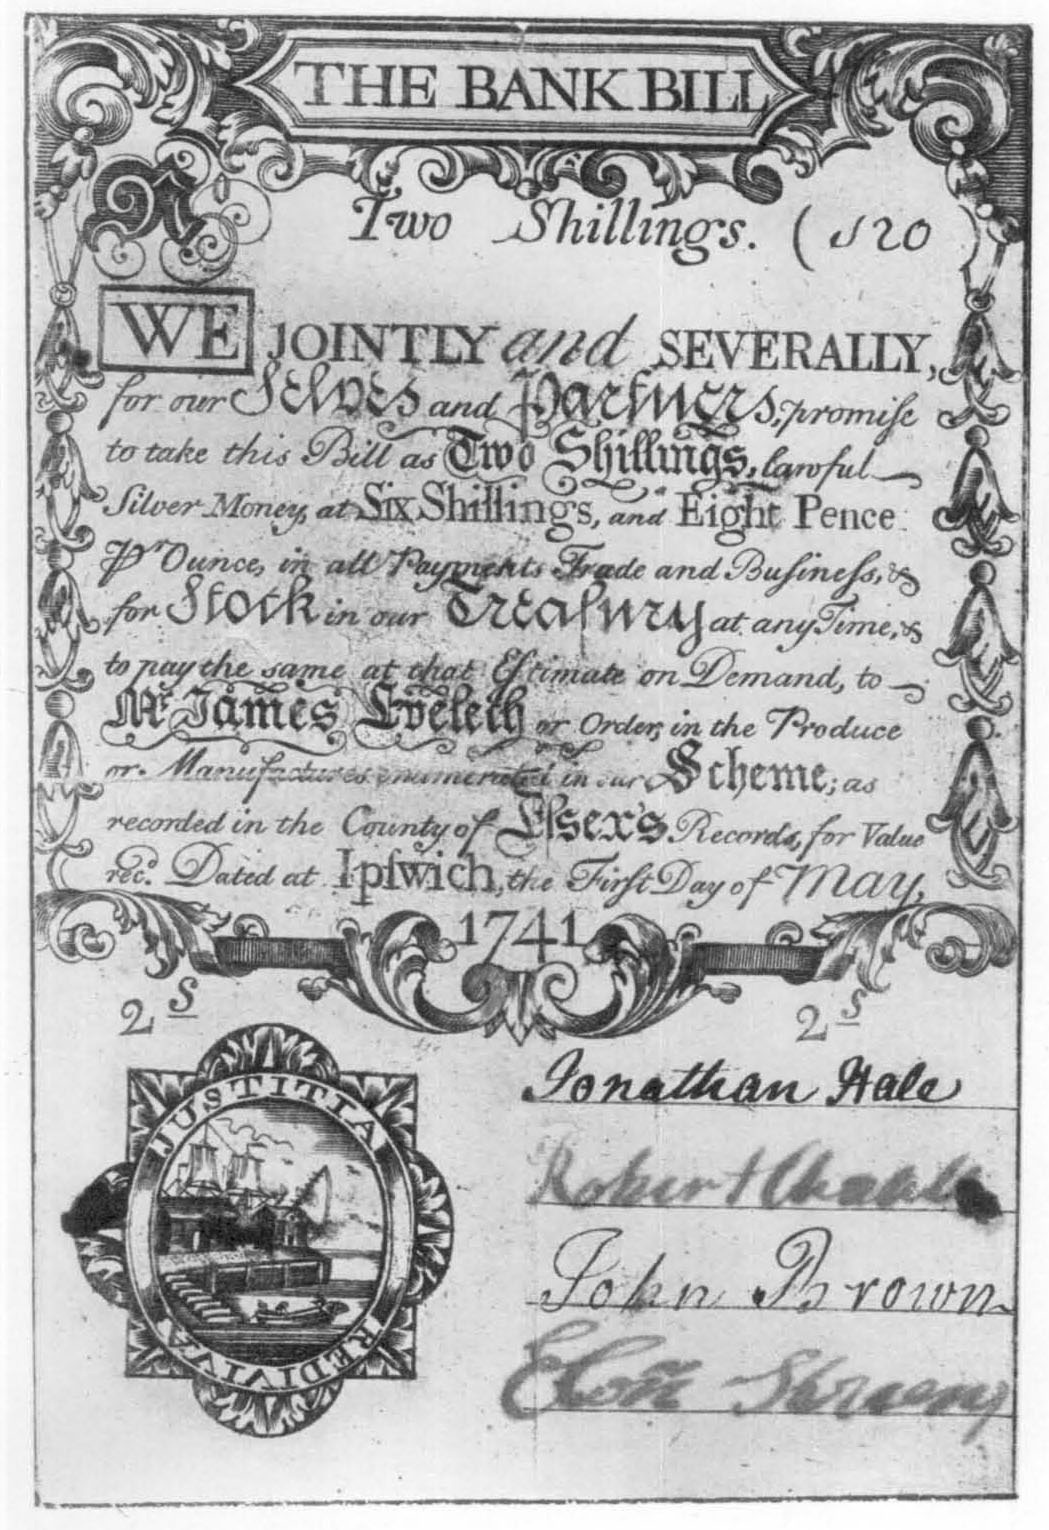 THE BANK BILL
Two Shillings. ( 120 )
WE JOINTLY and SEVERALLY,
for our Selves and Partners, promiſe
to take this Bill as Two Shillings, lawful
Silver Money, at Six Shillings, and Eight Pence
Pr Ounce, in all Payments Trade and Buſineſs, &
for Stock in our Treaſury at any Time, &
to pay the same at that Eſtimate on Demand, to
Mr James Eveleth or Order, in the Produce
or Manufactures enumerated in our Scheme; as
recorded in the County of Eſsex's Records, for Value
rec. Dated at Ipſwich, the First Day of May,
1741
2 S 2 S
JUSTITIA REDIVIVA
Jonathan Hale
Robert
John Brown